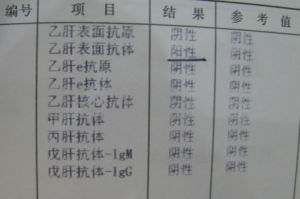 编号 项目 结果 参考值
乙肝表面抗原 阴性 阴性
乙肝表面抗体 阳性 阴性
乙肝e抗原 阴性 阴性
乙肝e抗体 阴性 阴性
乙肝核心抗体 阴性 阴性
甲肝抗体 阴性 阴性
丙肝抗体 阴性 阴性
戊肝抗体-IgM 阴性 阴性
戊肝抗体-IgG 阴性 阴性